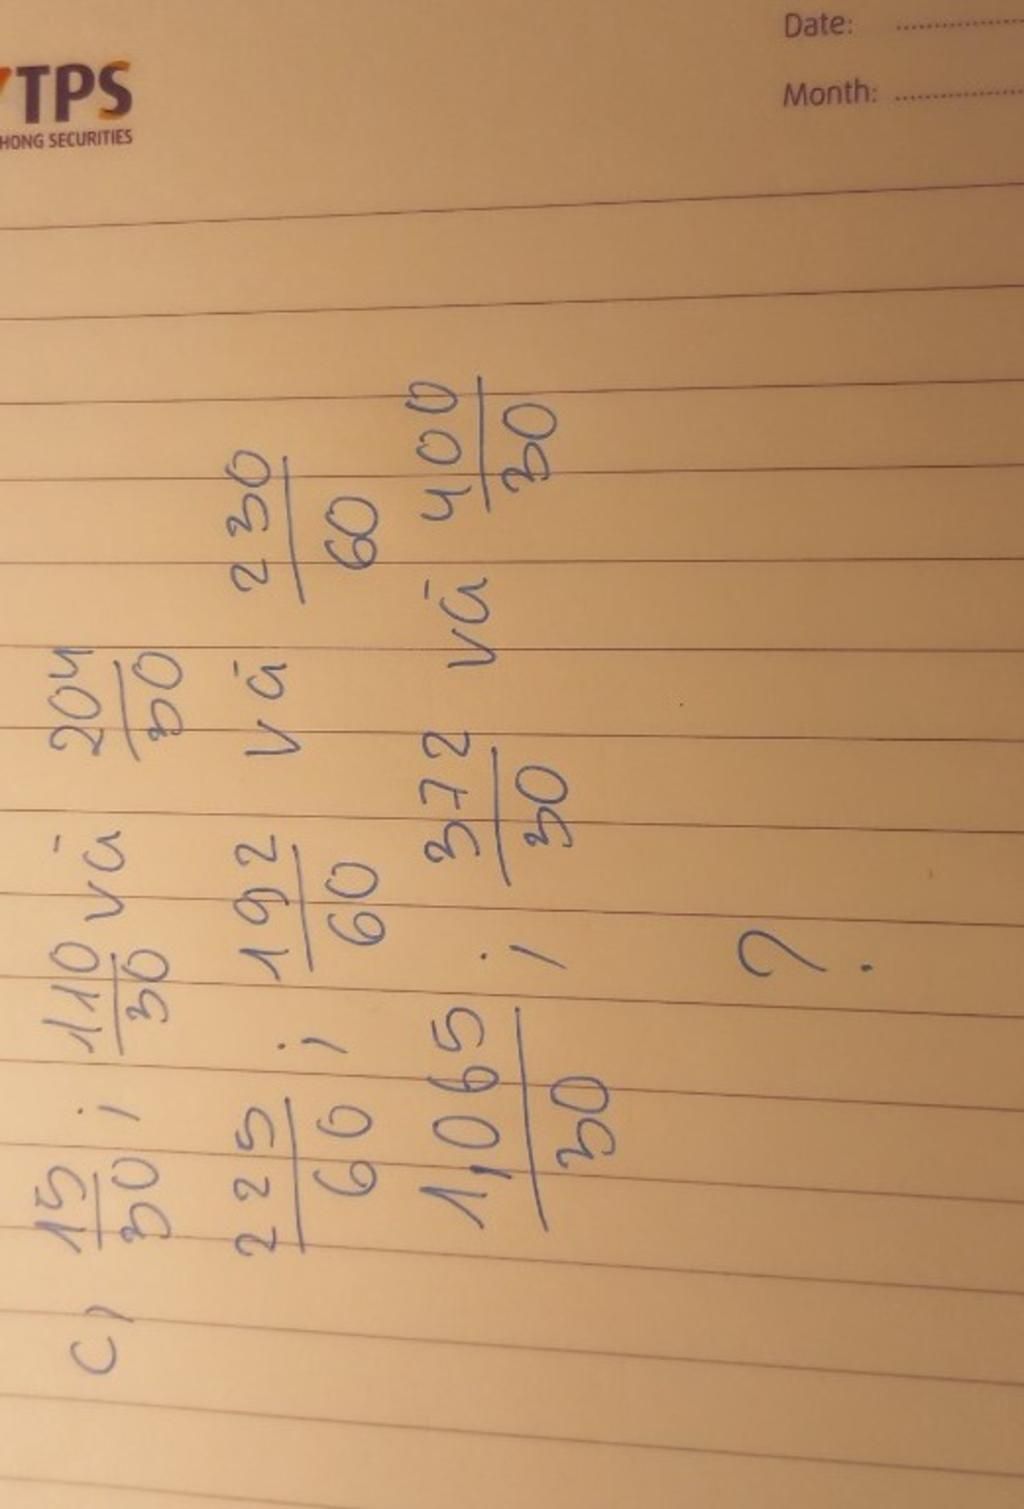 TPS
HONG SECURITIES
Date:
Month:
c) 15/30 ; 110/30 và 204/30
225/60 ; 192/60 và 230/60
1,065/30 ; 372/30 và 400/30
?